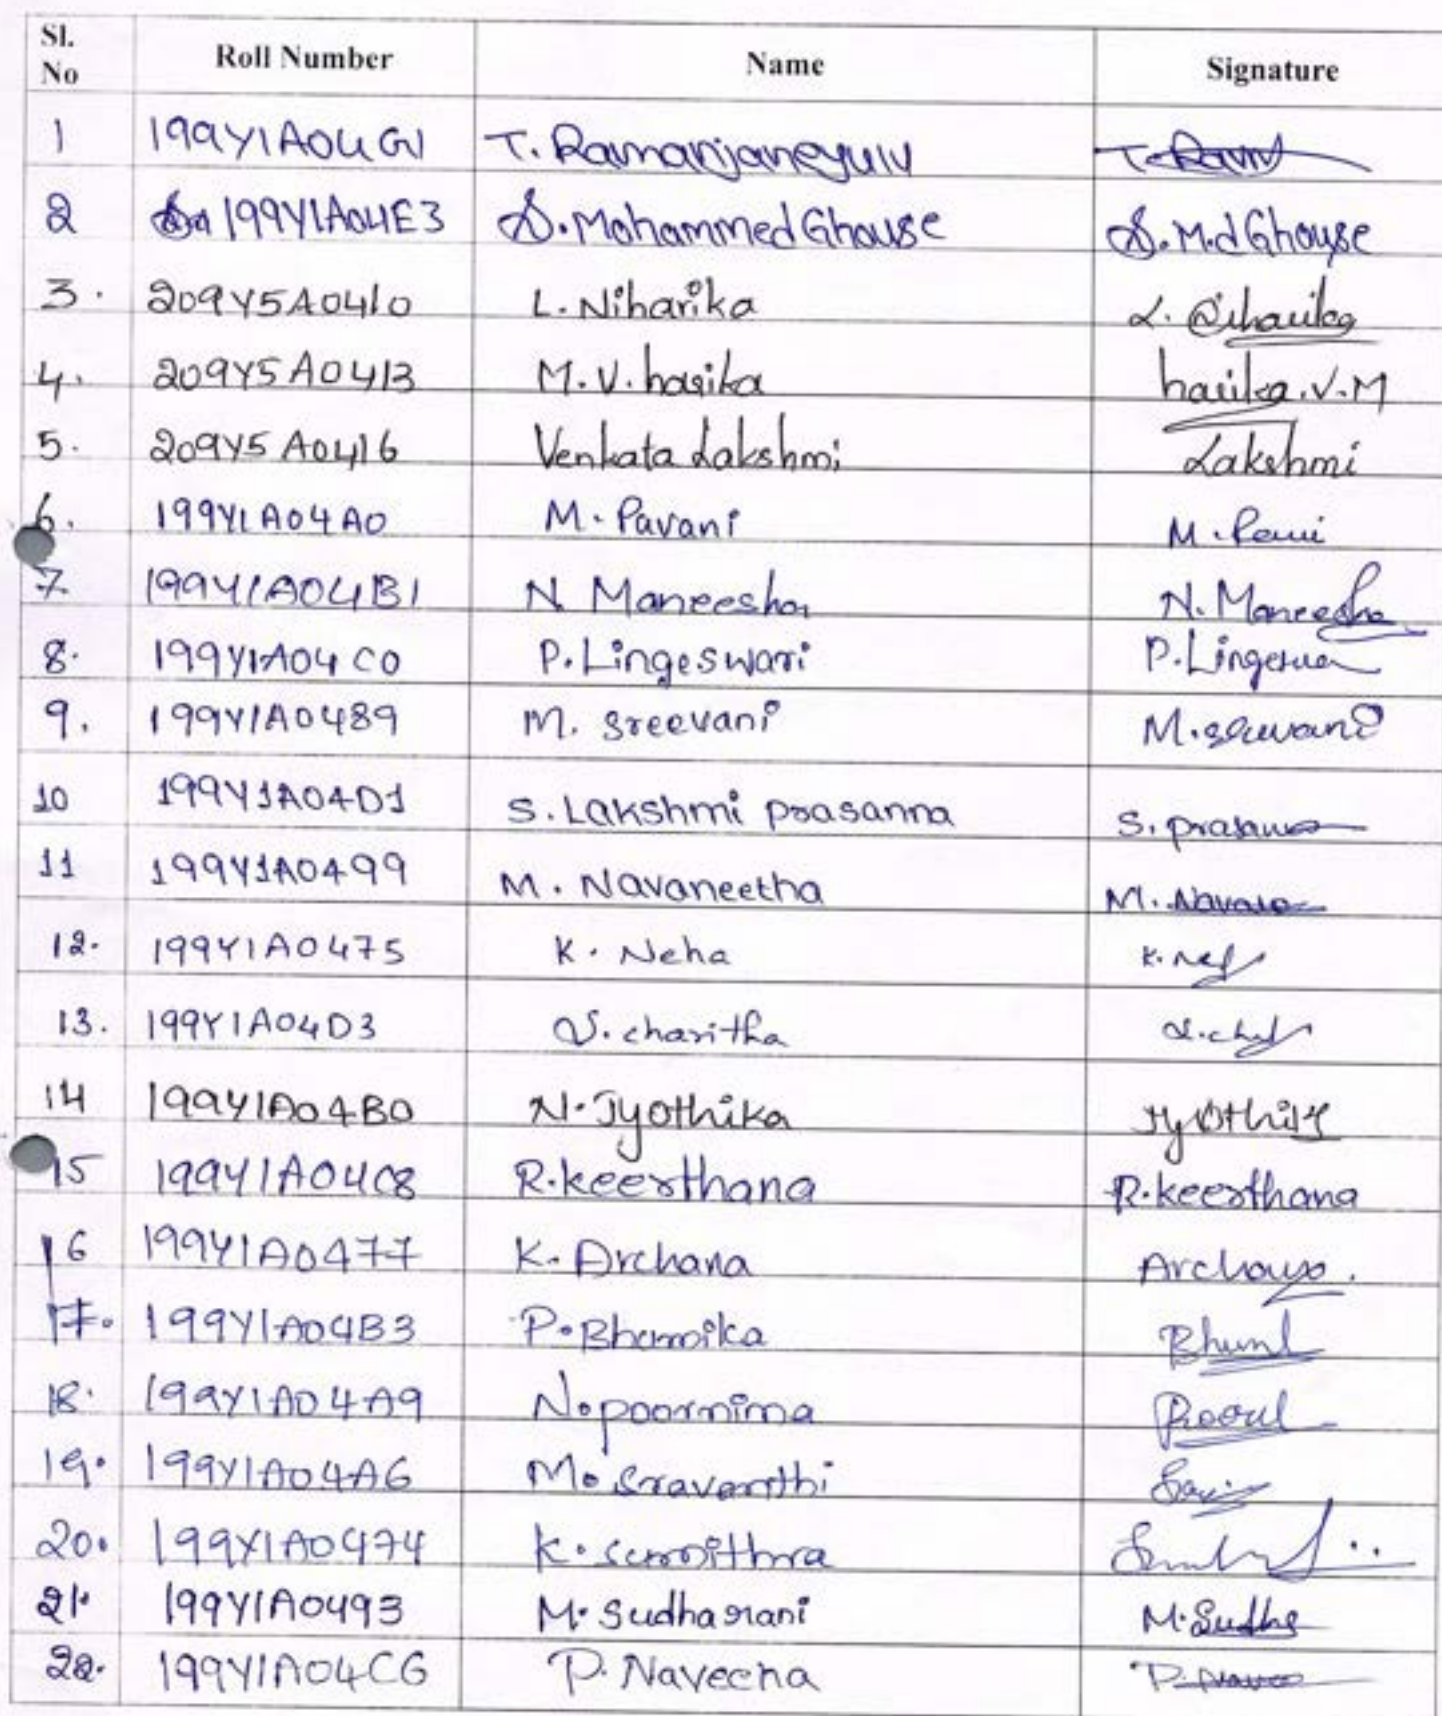 Sl. No Roll Number Name Signature
1 199Y1A04G1 T. Ramanjaneyulu T. Ram
2 199Y1A04E3 S. Mohammed Ghouse S. M.d Ghouse
3. 209Y5A0410 L. Niharika L. Niharika
4. 209Y5A0413 M. V. harika harika. V. M
5. 209Y5A0416 Venkata Lakshmi Lakshmi
6. 199Y1A04A0 M. Pavani M.
7 199Y1A04B1 N. Maneesha N. Maneesha
8. 199Y1A04C0 P. Lingeswari P. Lingeswa
9. 199Y1A0489 M. Sreevani M. Sreevani
10 199Y1A04D1 S. Lakshmi prasanna S. prasanna
11 199Y1A0499 M. Navaneetha M. Navane
12. 199Y1A0475 K. Neha K. Neh
13. 199Y1A04D3 S. charitha S. cha
14 199Y1A04B0 N. Jyothika Jyothika
15 199Y1A04C8 R. keerthana R. keerthana
16 199Y1A0477 K. Archana Archana.
17. 199Y1A04B3 P. Bhumika Bhumi
18. 199Y1A04A9 N. poornima
19. 199Y1A04A6 M. Sravanthi
20. 199Y1A0474 K. Sumithra
21. 199Y1A0493 M. Sudha rani M. Sudha
22. 199Y1A04C6 P. Naveena P. Navee